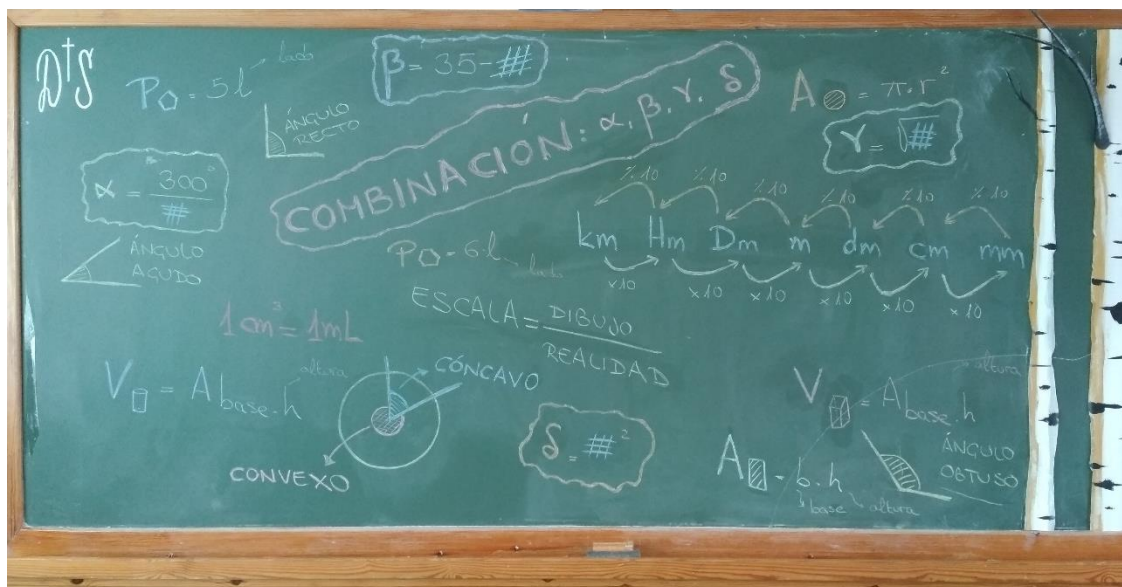 D†S
P⬠ = 5l
lado
β = 35 - #
ÁNGULO
RECTO
COMBINACIÓN: α, β, γ, δ
A○ = π.r²
γ = √#
α = 300° / #
ÁNGULO
AGUDO
% 10 % 10 % 10 % 10 % 10 % 10
km Hm Dm m dm cm mm
x10 x10 x10 x10 x10 x10
P⬡ = 6.l
lado
ESCALA = DIBUJO / REALIDAD
1 cm³ = 1mL
V = A base . h
altura
CÓNCAVO
CONVEXO
δ = #²
V = A base . h
altura
A▯ = b . h
base altura
ÁNGULO
OBTUSO